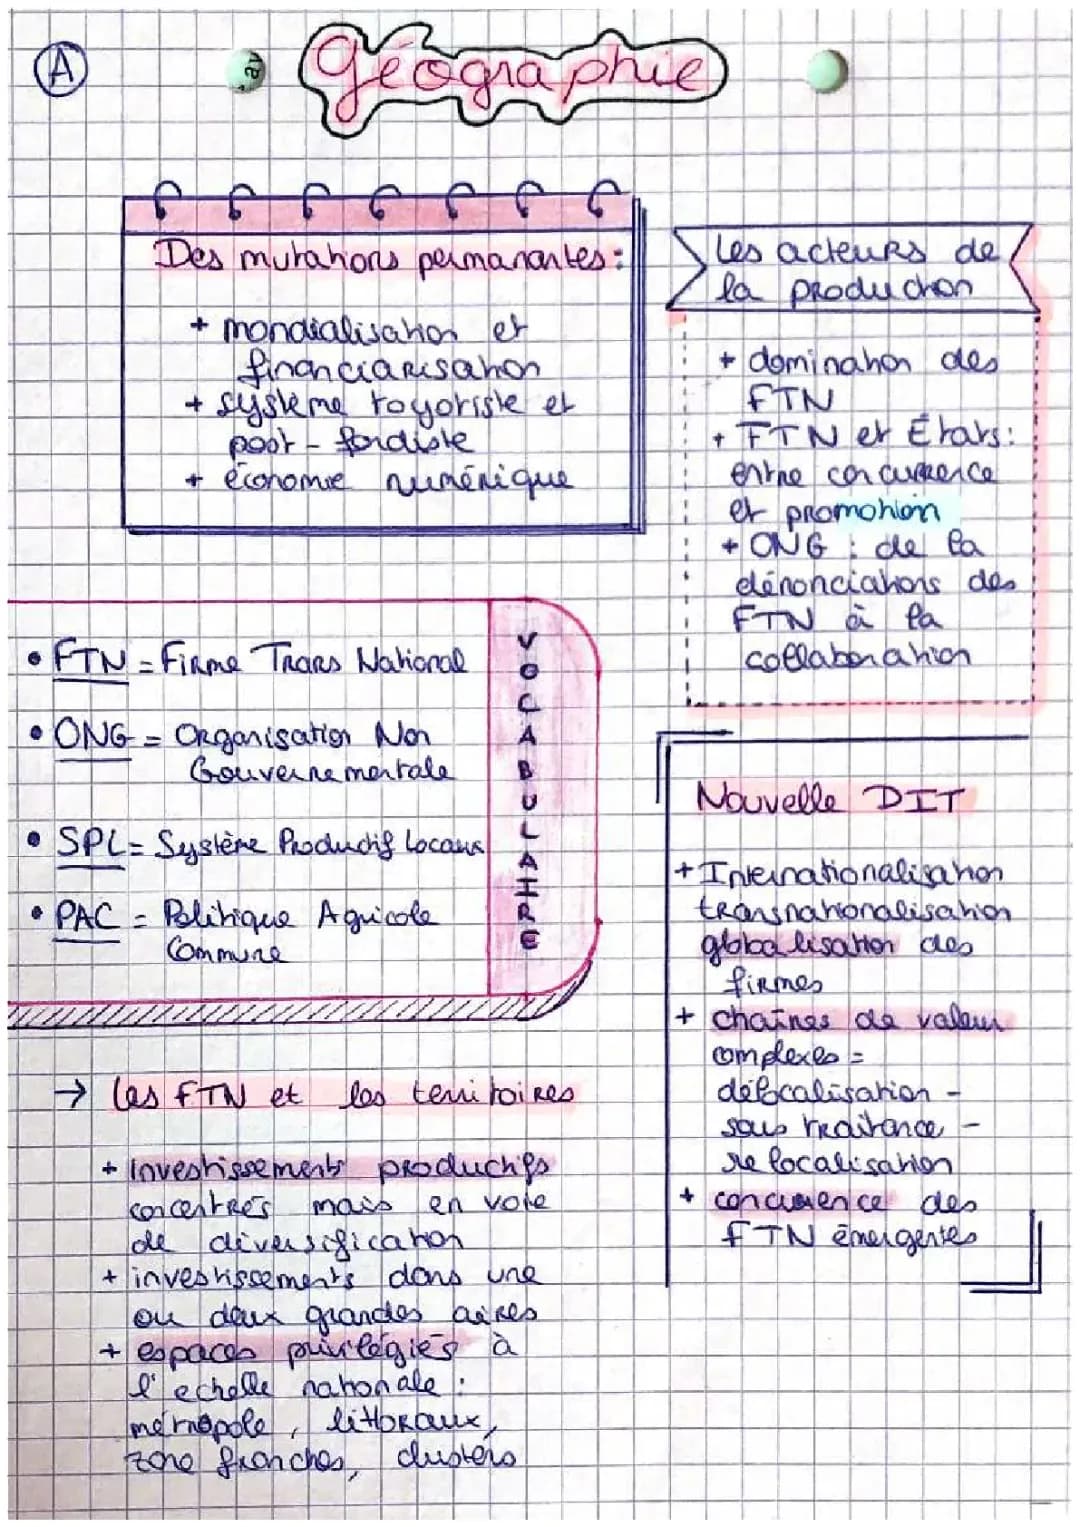 A
av
Géographie
Des mutations permanantes :
+ mondialisation et
financiarisation
+ système toyoriste et
post-fordiste
+ économie numérique
Les acteurs de
la production
+ domination des
FTN
+ FTN et États :
entre concurrence
et promotion
+ ONG : de la
dénonciations des
FTN à la
collaboration
• FTN = Firme Trans National
• ONG = Organisation Non
Gouvernementale
• SPL = Système Productif Locaux
• PAC = Politique Agricole
Commune
VOCABULAIRE
Nouvelle DIT
+ Internationalisation
transnationalisation
globalisation des
firmes
+ chaînes de valeur
complexes =
délocalisation -
sous traitance -
relocalisation
+ concurrence des
FTN émergentes
→ les FTN et les territoires
+ investissements productifs
concentrés mais en voie
de diversification
+ investissements dans une
ou deux grandes aires
+ espaces privilégiés à
l'echelle nationale :
métropole, littoraux,
zone franches, clusters